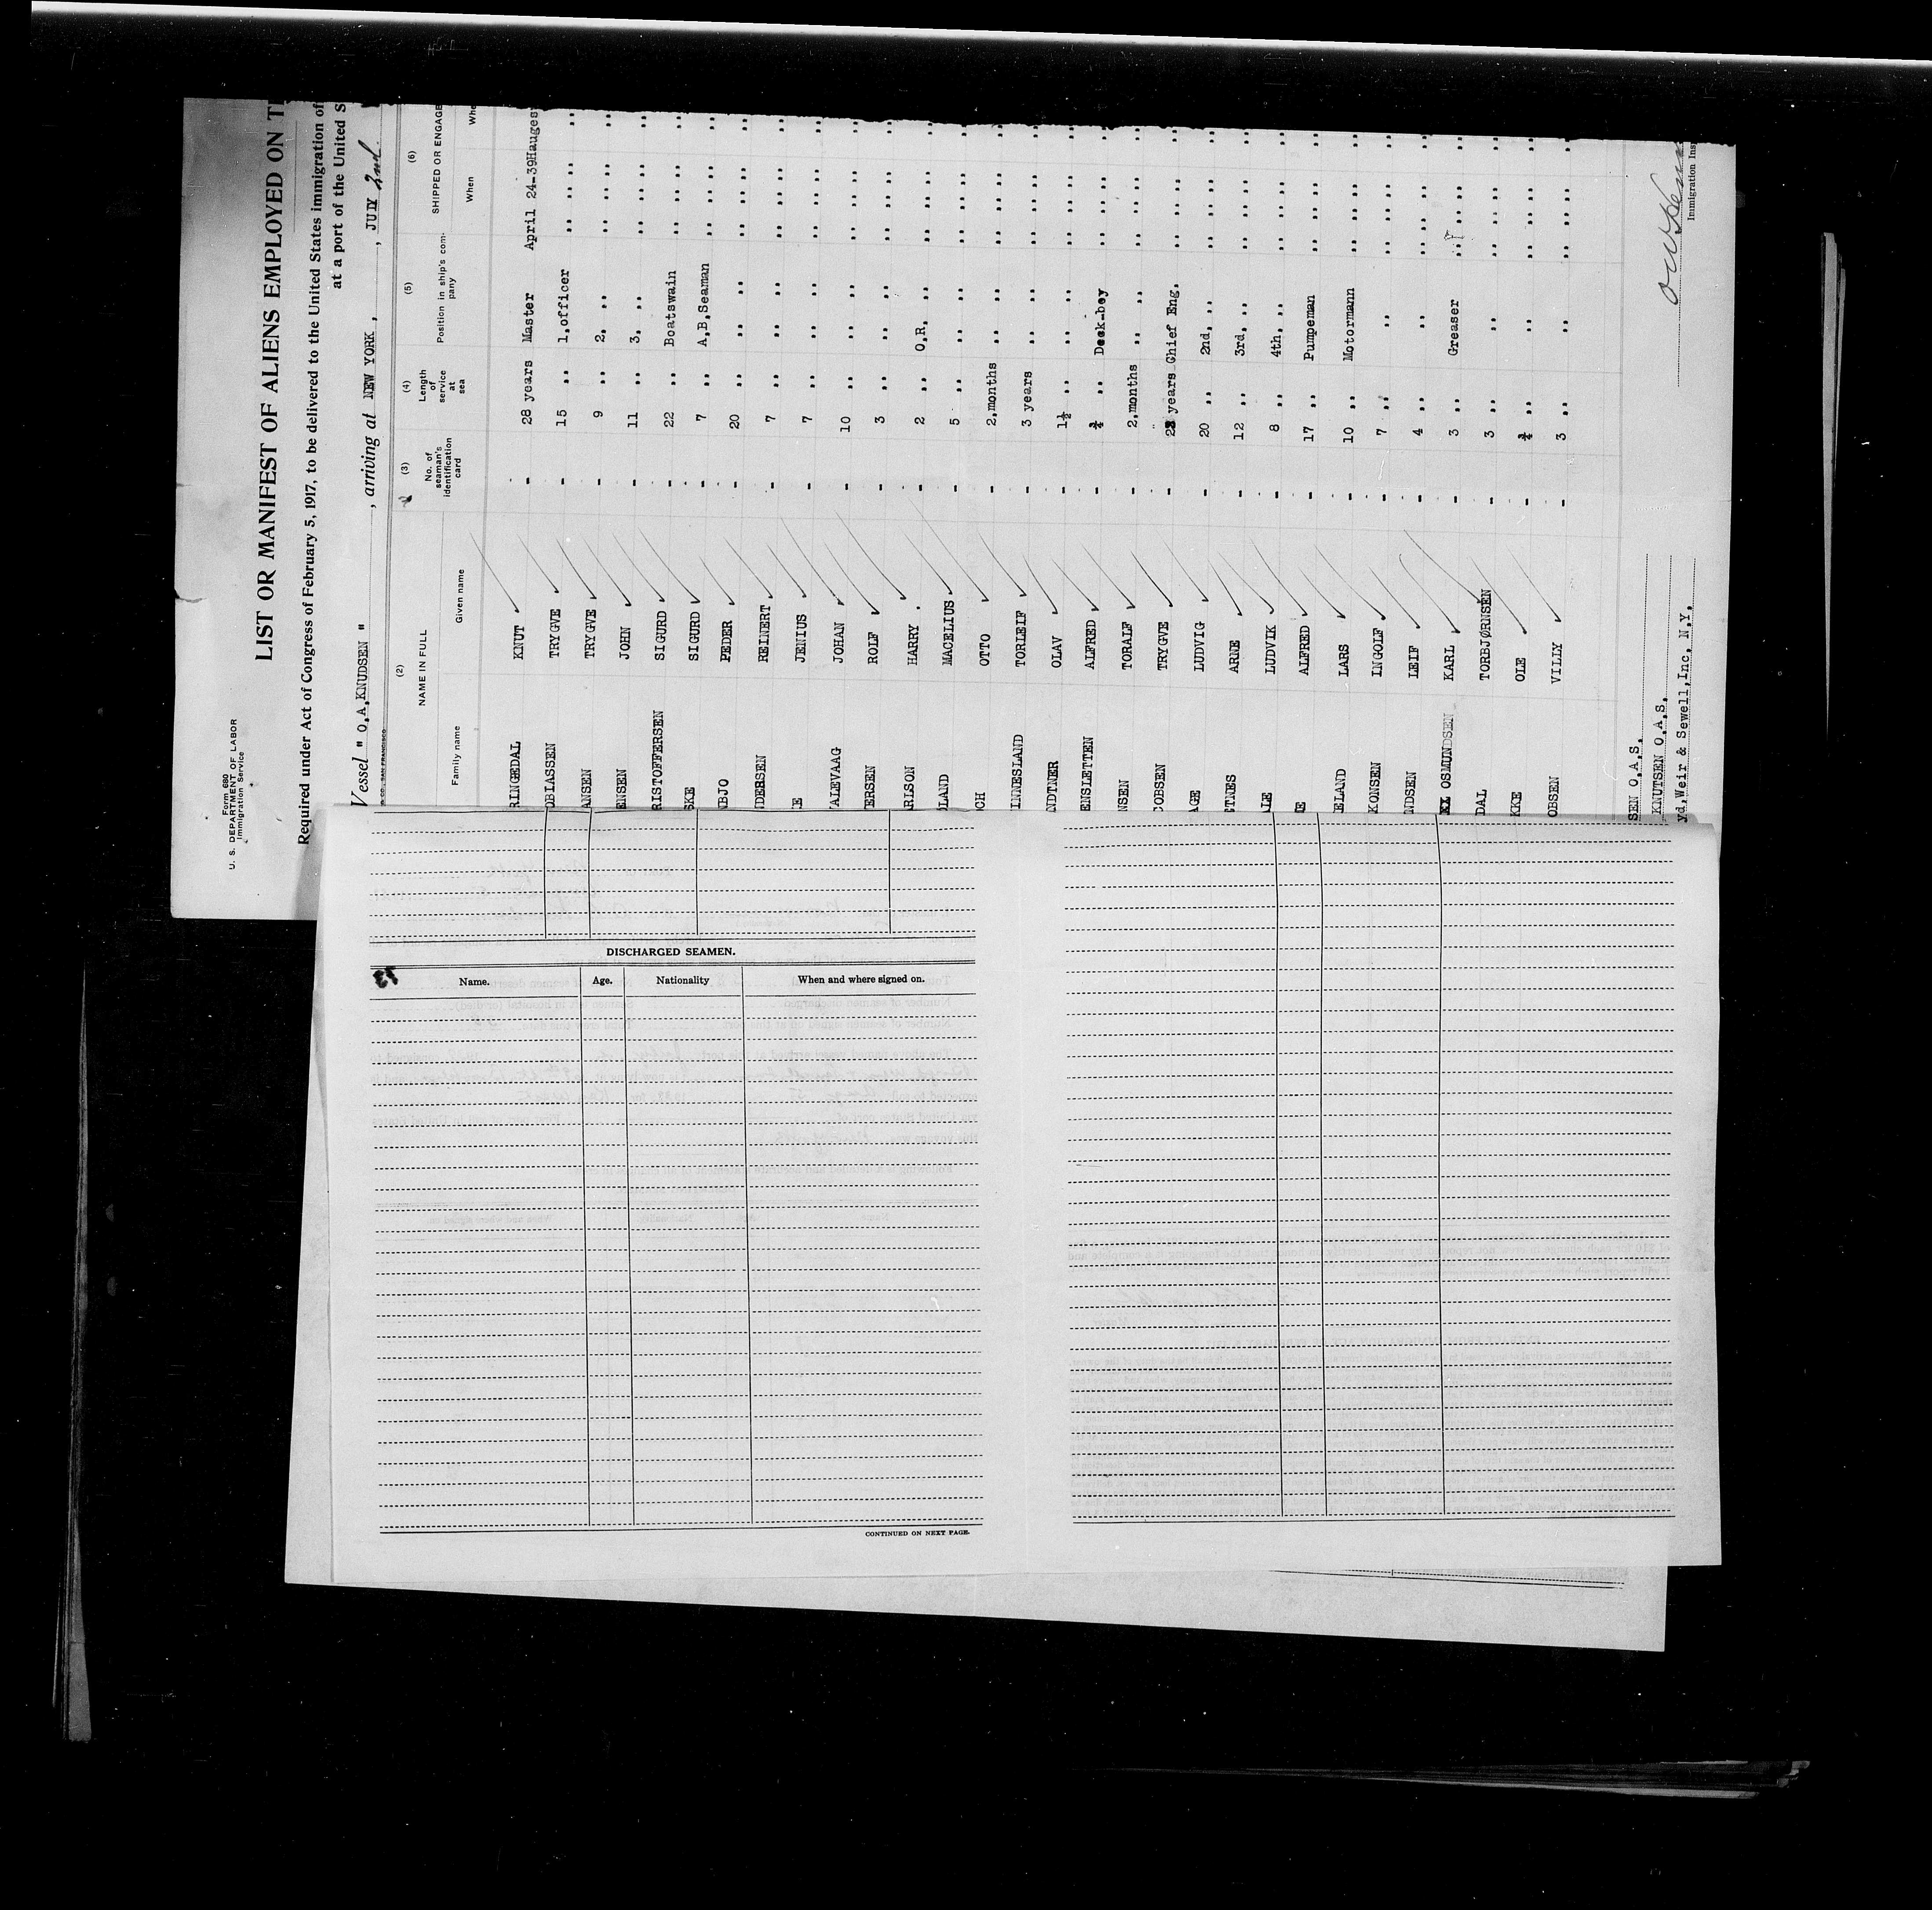 Form 680
U. S. DEPARTMENT OF LABOR
Immigration Service
LIST OR MANIFEST OF ALIENS EMPLOYED ON
Required under Act of Congress of February 5, 1917, to be delivered to the United States immigration of
at a port of the United S
Vessel " O.A.KNUDSEN " , arriving at NEW YORK , , JULY 2nd
(2) (3) (4) (5) (6)
NAME IN FULL No. of seaman's identification card Length of service at sea Position in ship's company SHIPPED OR ENGAGE
Family name Given name When Whe
RINGEDAL KNUT - 28 years Master April 24-39 Hauges
OBIASSEN TRYGVE - 15 ,, 1,officer ,, ,, ,, ,,
ANSEN TRYGVE - 9 ,, 2, ,, ,, ,, ,, ,,
ENSEN JOHN - 11 ,, 3, ,, ,, ,, ,, ,,
RISTOFFERSEN SIGURD - 22 ,, Boatswain ,, ,, ,, ,,
SKE SIGURD - 7 ,, A,B,Seaman ,, ,, ,, ,,
IBJO PEDER - 20 ,, ,, ,, ,, ,, ,, ,,
IDERSEN REINERT - 7 ,, ,, ,, ,, ,, ,, ,,
E JENIUS - 7 ,, ,, ,, ,, ,, ,, ,,
ALEVAAG JOHAN - 10 ,, ,, ,, ,, ,, ,, ,,
ERSEN ROLF - 3 ,, ,, ,, ,, ,, ,, ,,
RLSON HARRY - 2 ,, O,R, ,, ,, ,, ,, ,,
LAND MACELIUS - 5 ,, ,, ,, ,, ,, ,, ,,
CH OTTO - 2,months ,, ,, ,, ,, ,, ,,
INNESLAND TORLEIF - 3 years ,, ,, ,, ,, ,, ,,
NDTNER OLAV - 1½ ,, ,, ,, ,, ,, ,, ,,
ENSLETTEN ALFRED - ¾ ,, Deck-boy ,, ,, ,, ,,
NSEN TORALF - 2,months ,, ,, ,, ,, ,, ,,
COBSEN TRYGVE - years Chief Eng, ,, ,, ,, ,,
AGE LUDVIG - 20 ,, 2nd, ,, ,, ,, ,, ,,
TNES ARNE - 12 ,, 3rd, ,, ,, ,, ,, ,,
LE LUDVIK - 8 ,, 4th, ,, ,, ,, ,, ,,
E ALFRED - 17 ,, Pumpeman ,, ,, ,, ,,
ELAND LARS - 10 ,, Motormann ,, ,, ,, ,,
KONSEN INGOLF - 7 ,, ,, ,, ,, ,, ,,
NDSEN LEIF - 4 ,, ,, ,, ,, ,, ,,
OSMUNDSEN KARL - 3 ,, Greaser ,, ,, ,, ,,
DAL TORBJØRNSEN - 3 ,, ,, ,, ,, ,, ,,
KKE OLE - ¾ ,, ,, ,, ,, ,, ,,
OBSEN VILLY - 3 ,, ,, ,, ,, ,, ,,
SEN O.A.S.
KNUTSEN O.A.S.
yd,Weir & Sewell,Inc, N.Y.
Immigration Insp
DISCHARGED SEAMEN.
Name. Age. Nationality When and where signed on.
CONTINUED ON NEXT PAGE.